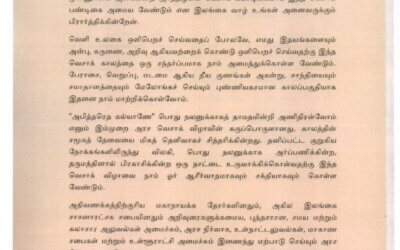 பண்டிகை அமைய வேண்டும் என இலங்கை வாழ் உங்கள் அனைவருக்கும்
பிரார்த்திக்கின்றேன்.
வெளி உலகை ஒளிபெறச் செய்வதைப் போலவே, எமது இதயங்களையும்
அன்பு, கருணை, அறிவு ஆகியவற்றைக் கொண்டு ஒளிபெறச் செய்வதற்கு இந்த
வெசாக் காலத்தை ஒரு சந்தர்ப்பமாக நாம் அமைத்துக்கொள்ள வேண்டும்.
பேராசை, வெறுப்பு, மடமை ஆகிய தீய குணங்கள் அகன்று, சாந்தியையும்
சமாதானத்தையும் மேலோங்கச் செய்யும் புண்ணியகரமான காலப்பகுதியாக
இதனை நாம் மாற்றிக்கொள்வோம்.
பொது நலனுக்காகத்
எனும் இம்முறை அரச வெசாக் விழாவின் கருப்பொருளானது, காலத்தின்
சமூகத் தேவையை மிகத் தெளிவாகச் சித்தரிக்கின்றது. தனிப்பட்ட குறுகிய
நோக்கங்களிலிருந்து விலகி, பொது நலனுக்காக அர்ப்பணிக்கின்ற,
தருமத்தினால் பிரகாசிக்கின்ற ஒரு நாட்டை உருவாக்கிக்கொள்வதற்கு இந்த
வெசாக் விழாவை நாம் ஓர் ஆசீர்வாதமாகவும் சக்தியாகவும் கொள்ள
வேண்டும்.
அதிவணக்கத்திற்குரிய மகாநாயக்க தேரர்களினதும், அகில இலங்கை
சாசனாரட்சக சபையினதும் அறிவுரைகளுக்கமைய, புத்தசாசன, சமய மற்றும்
கலாசார அலுவல்கள் அமைச்சு, அரச நிர்வாக, உள்நாட்டலுவல்கள், மாகாண
சபைகள் மற்றும் உள்ளூராட்சி அமைச்சும் இணைந்து ஏற்பாடு செய்யும் அரச